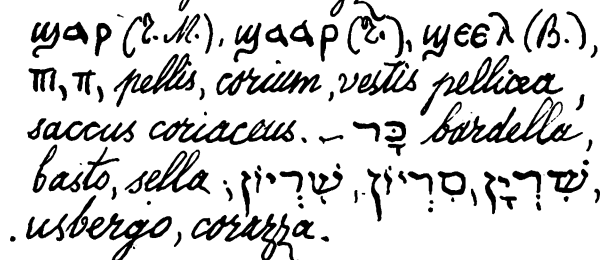 ϣⲁⲣ (T. M.), ϣⲁⲁⲣ (T.), ϣⲉⲉⲗ (B.),
ⲡⲓ, ⲡ, pellis, corium, vestis pellicea,
saccus coriaceus. – כָּר bardella,
basto, sella; שִׁרְיוֹן‎, סִרְיוֹן‎, שִׁרְיָן‎,
. usbergo, corazza.